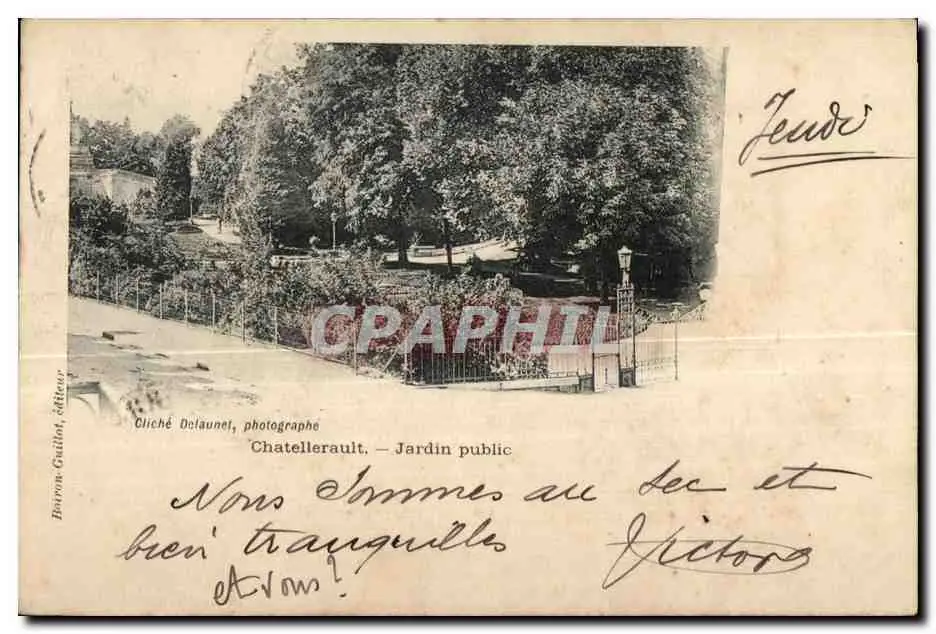 Jeudi
CPAPHIL
Cliché Delaunet, photographe
Chatellerault. — Jardin public
Boiron-Guillot, éditeur
Nous sommes au sec et
bien tranquilles
et vous?
Victors